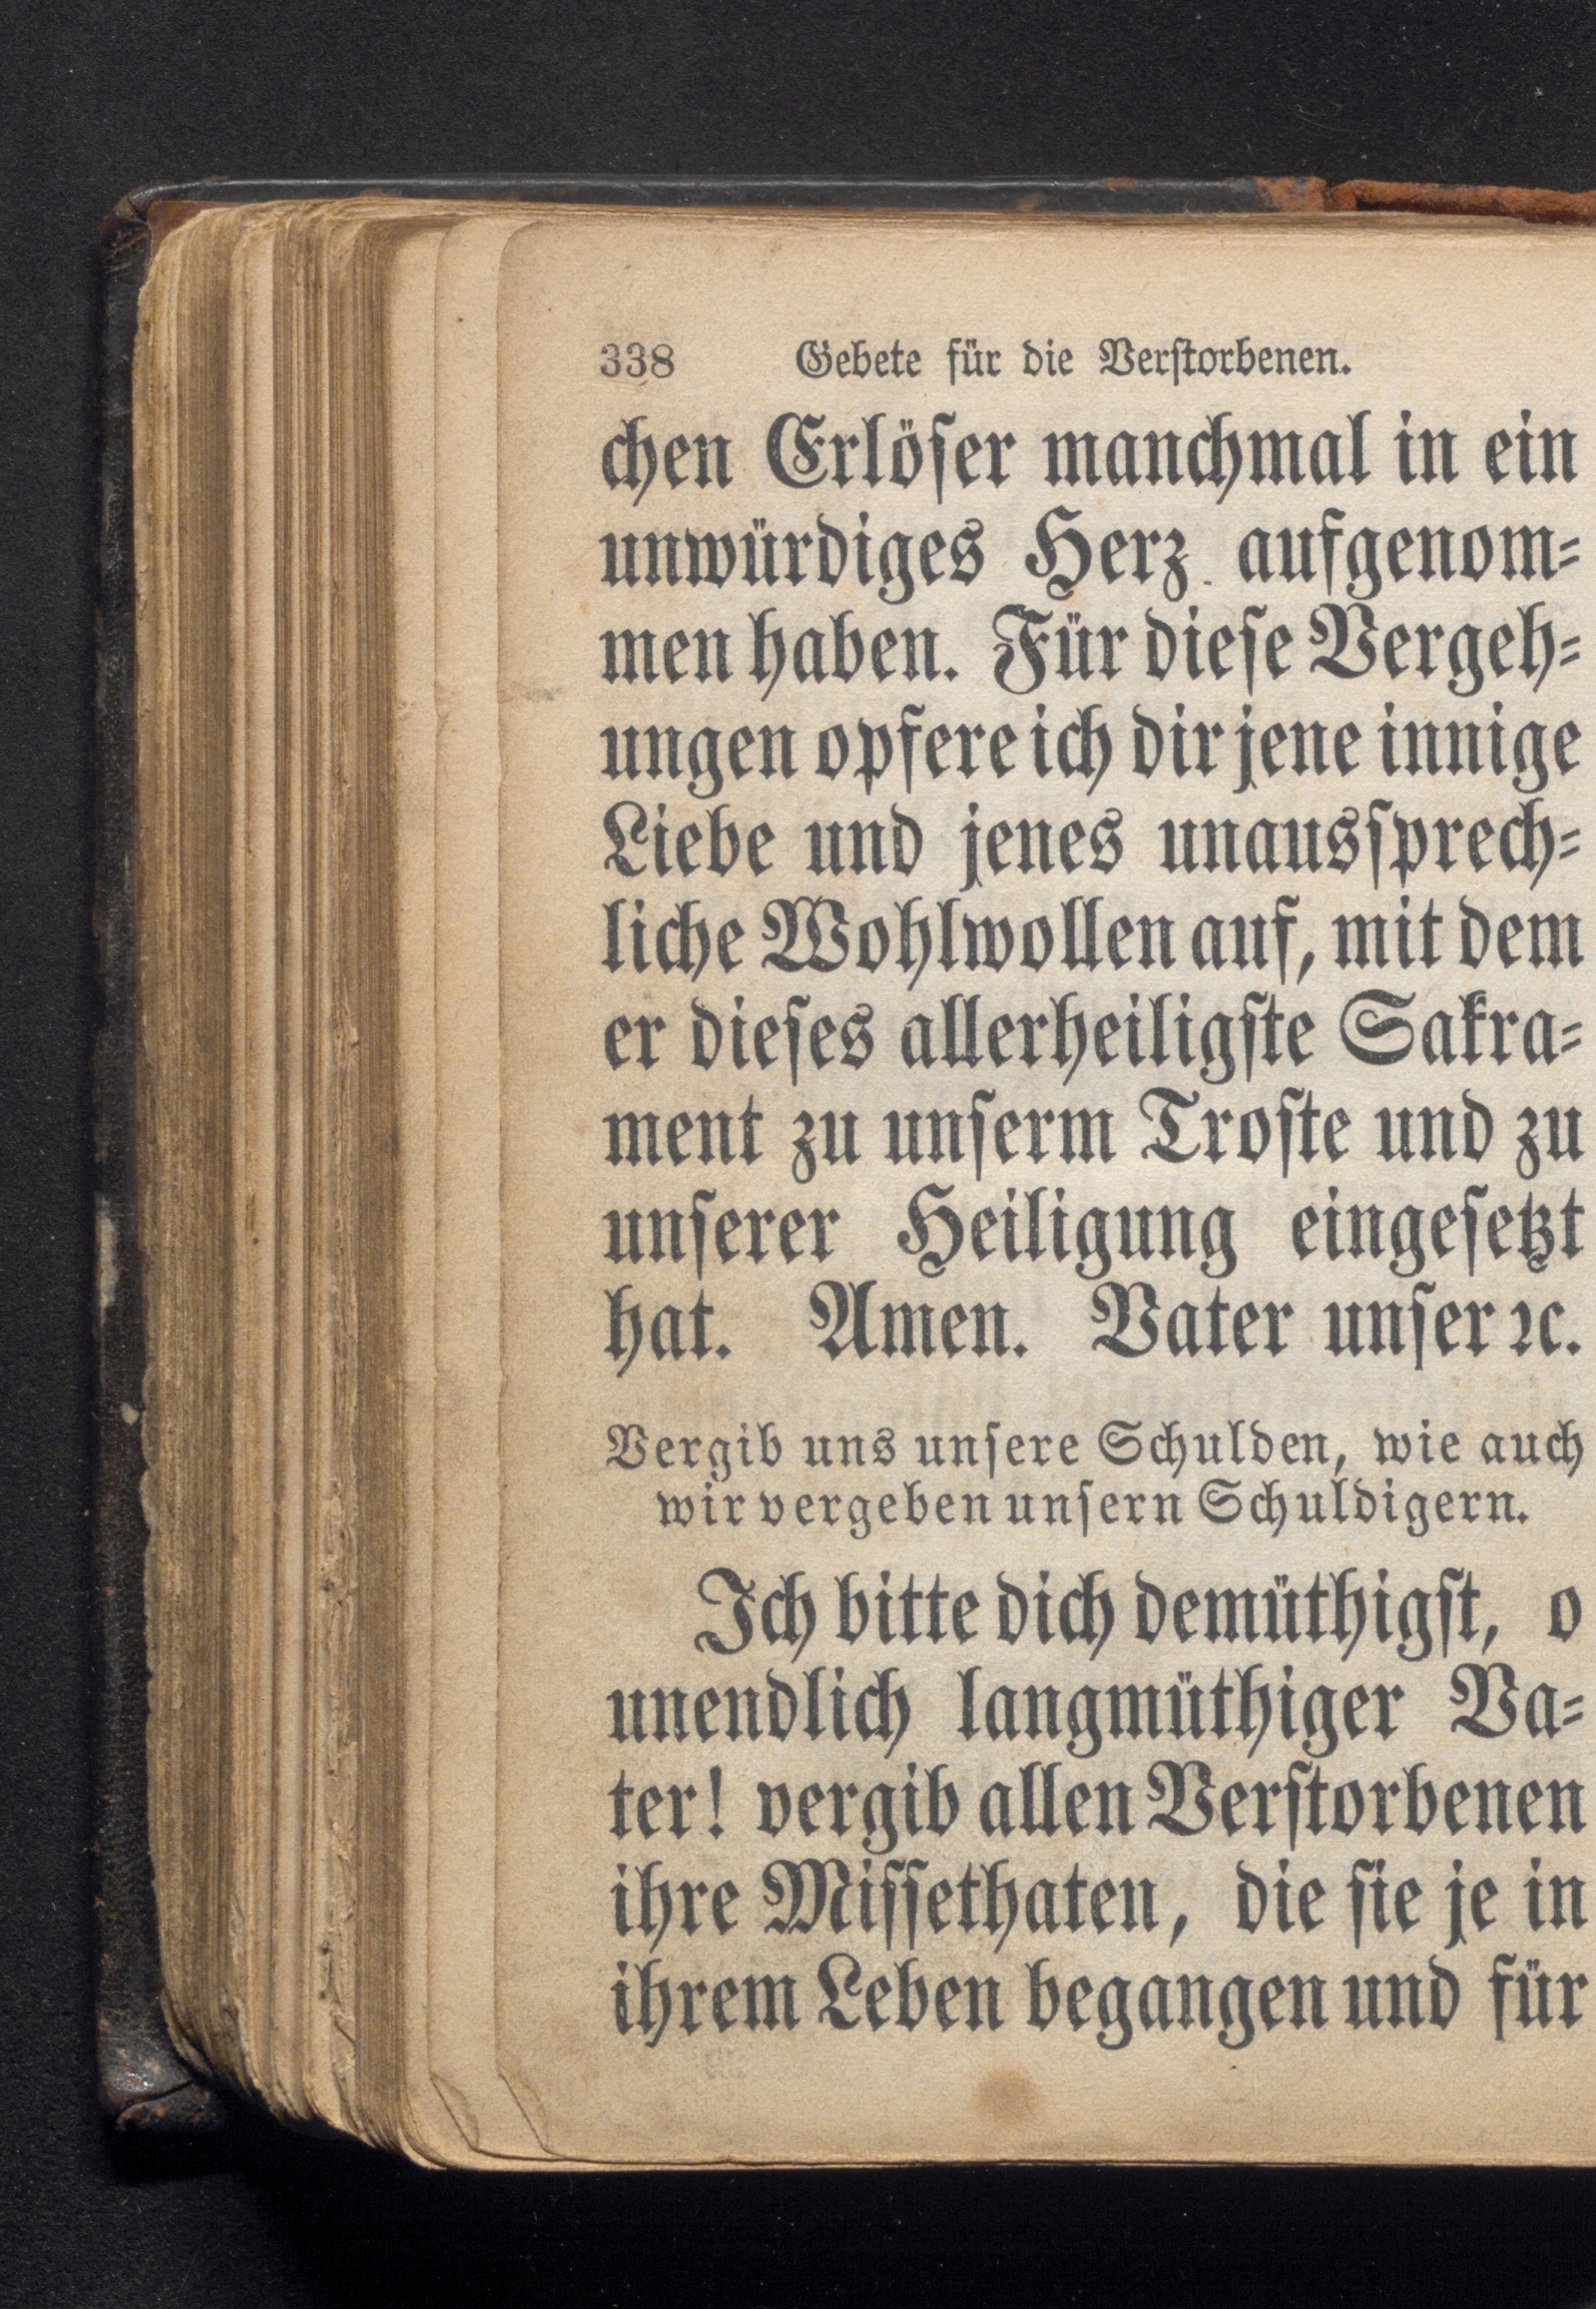 338 Gebete für die Verſtorbenen.
chen Erlöſer manchmal in ein
unwürdiges Herz aufgenom⸗
men haben. Für dieſe Vergeh⸗
ungen opfere ich dir jene innige
Liebe und jenes unausſprech⸗
liche Wohlwollen auf, mit dem
er dieſes allerheiligſte Sakra⸗
ment zu unſerm Troſte und zu
unſerer Heiligung eingeſetzt
hat. Amen. Vater unſer ꝛc.
Vergib uns unſere Schulden, wie auch
wir vergeben unſern Schuldigern.
Ich bitte dich demüthigſt, o
unendlich langmüthiger Va⸗
ter! vergib allen Verſtorbenen
ihre Miſſethaten, die ſie je in
ihrem Leben begangen und für